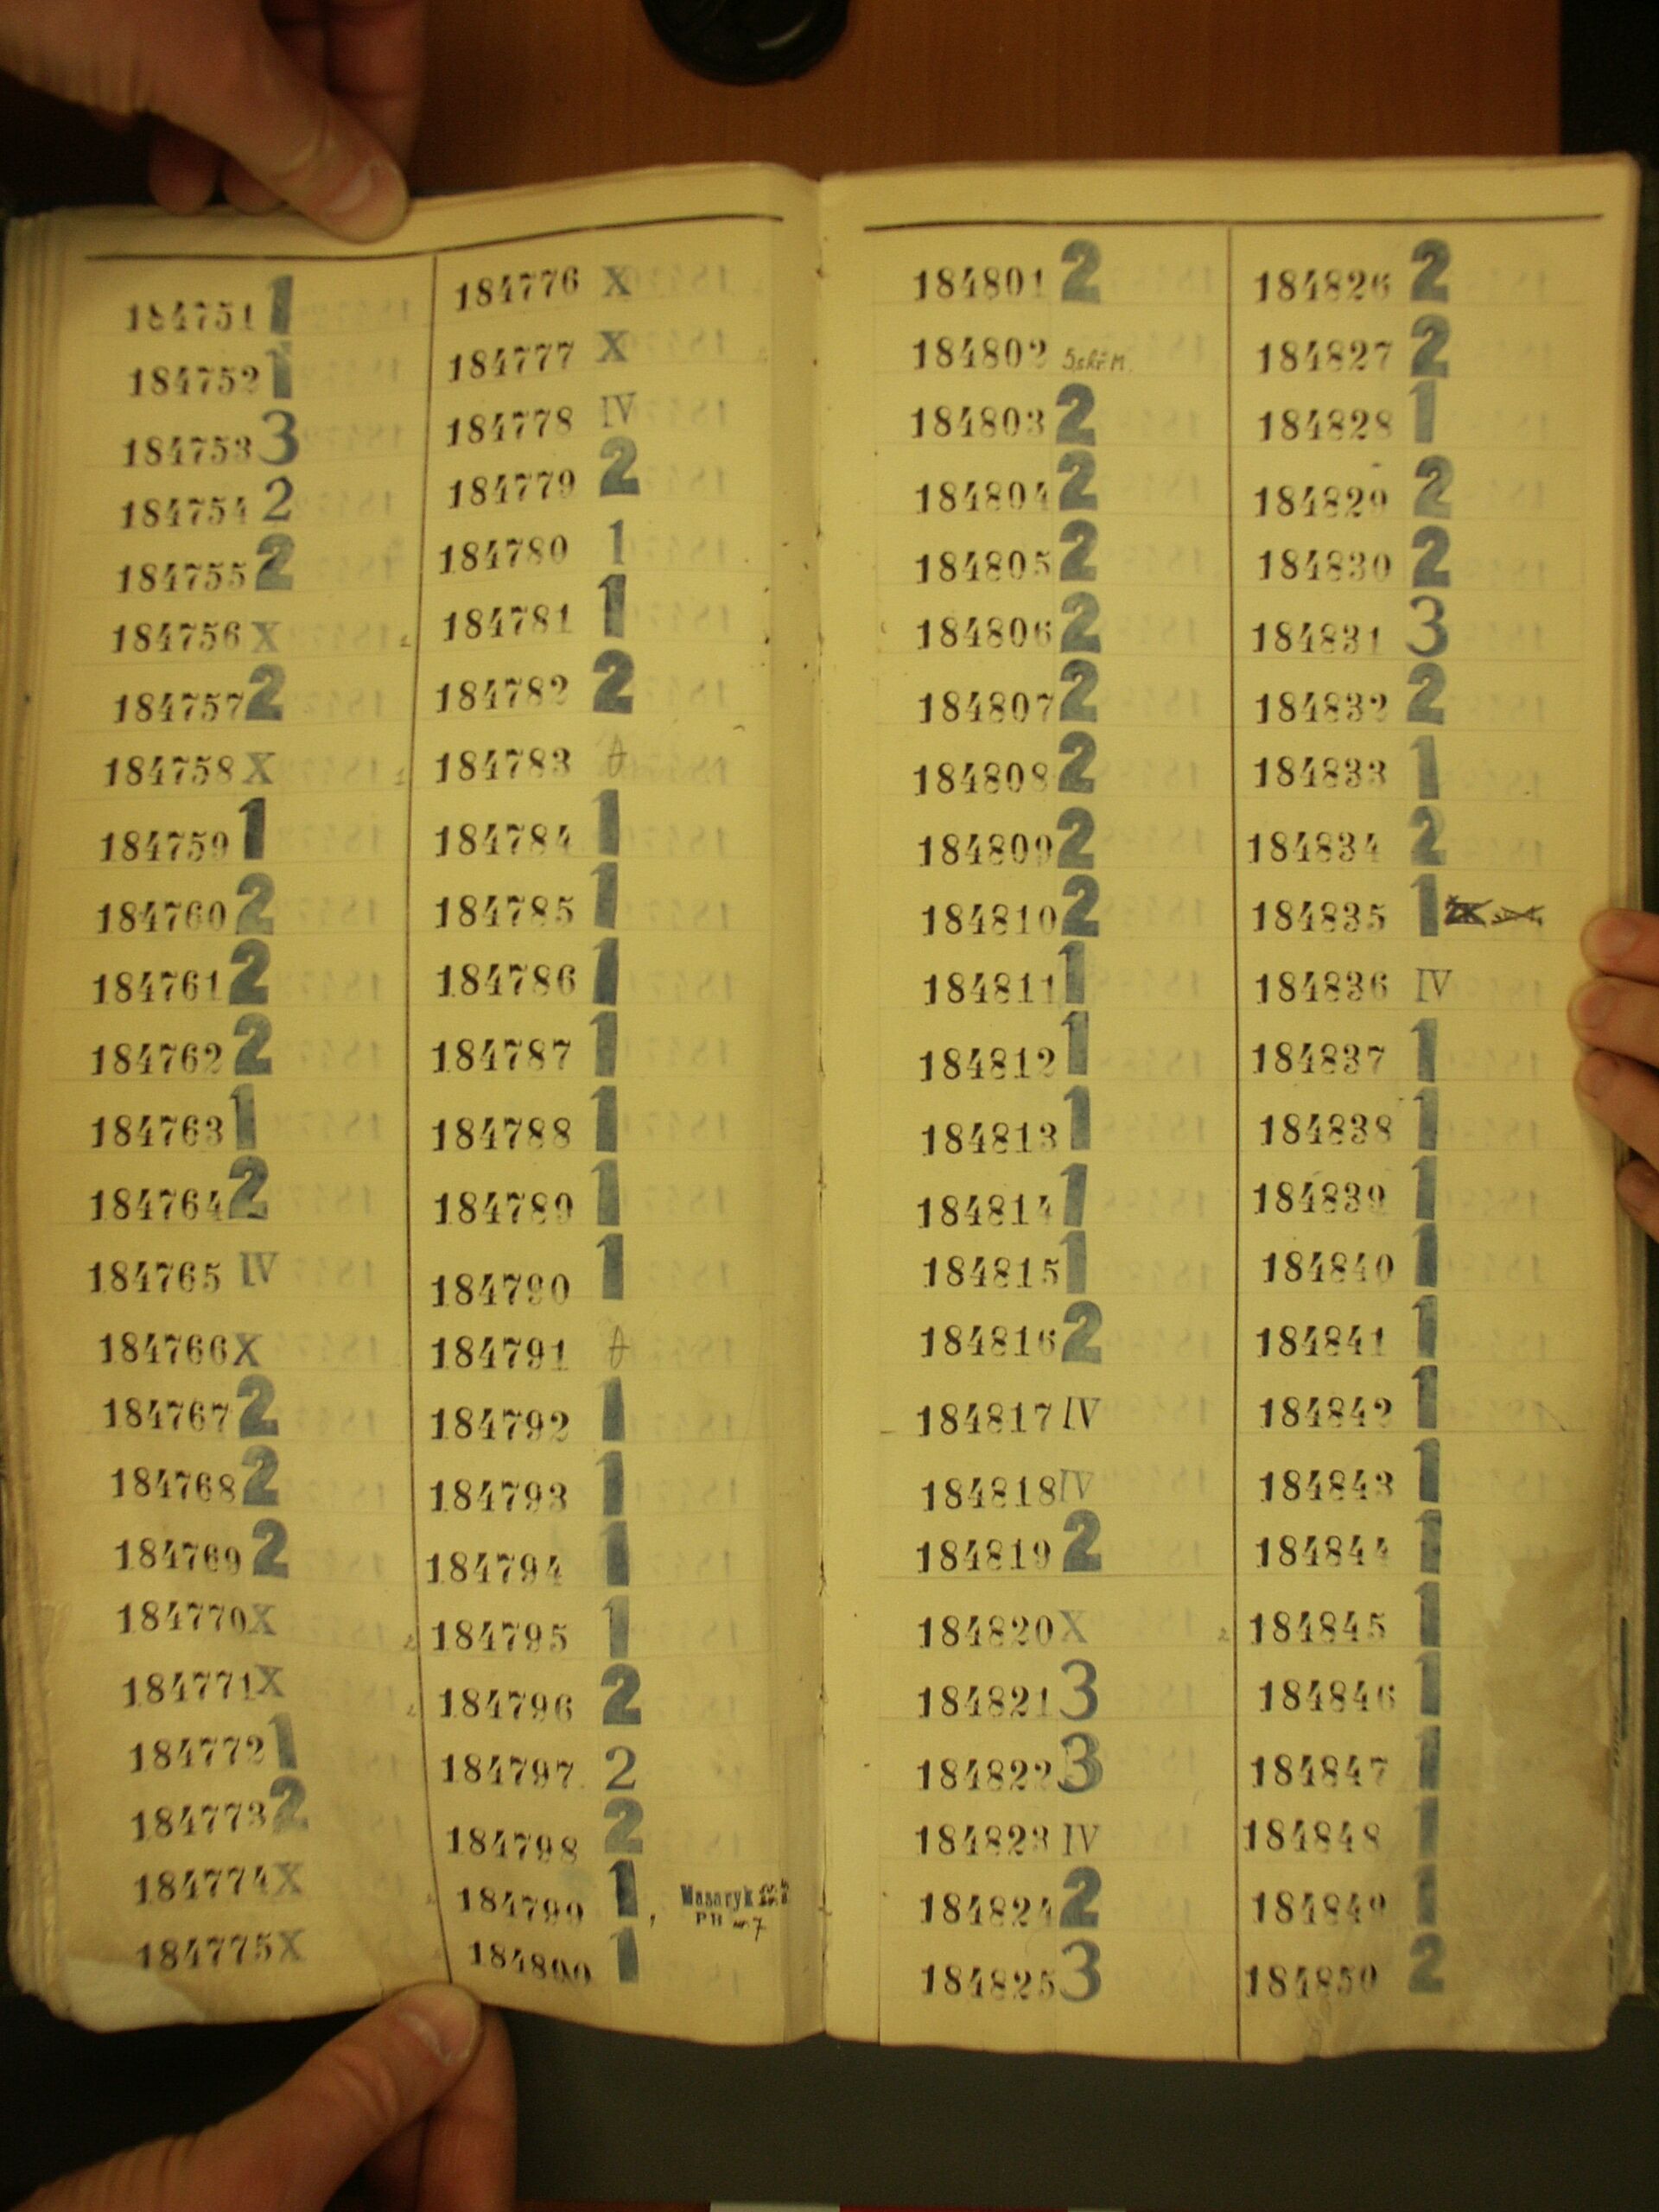 184751 1
184752 1
184753 3
184754 2
184755 2
184756 X
184757 2
184758 X
184759 1
184760 2
184761 2
184762 2
184763 1
184764 2
184765 IV
184766 X
184767 2
184768 2
184769 2
184770 X
184771 X
184772 1
184773 2
184774 X
184775 X
184776 X
184777 X
184778 IV
184779 2
184780 1
184781 1
184782 2
184783
184784 1
184785 1
184786 1
184787 1
184788 1
184789 1
184790 1
184791
184792 1
184793 1
184794 1
184795 1
184796 2
184797 2
184798 2
184799 1, Masaryk
184800 1
184801 2
184802
184803 2
184804 2
184805 2
184806 2
184807 2
184808 2
184809 2
184810 2
184811 1
184812 1
184813 1
184814 1
184815 1
184816 2
184817 IV
184818 IV
184819 2
184820 X
184821 3
184822 3
184823 IV
184824 2
184825 3
184826 2
184827 2
184828 1
184829 2
184830 2
184831 3
184832 2
184833 1
184834 2
184835 1
184836 IV
184837 1
184838 1
184839 1
184840 1
184841 1
184842 1
184843 1
184844 1
184845 1
184846 1
184847 1
184848 1
184849 1
184850 2